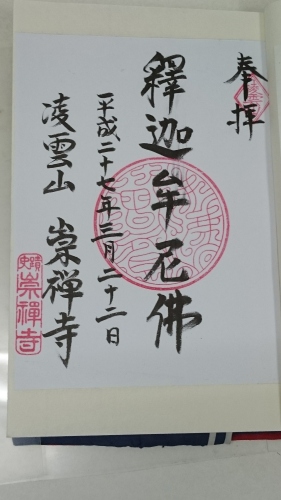 奉拝
釋迦牟尼佛
平成二十七年三月二十二日
凌雲山 崇禅寺
史蹟
崇禪寺